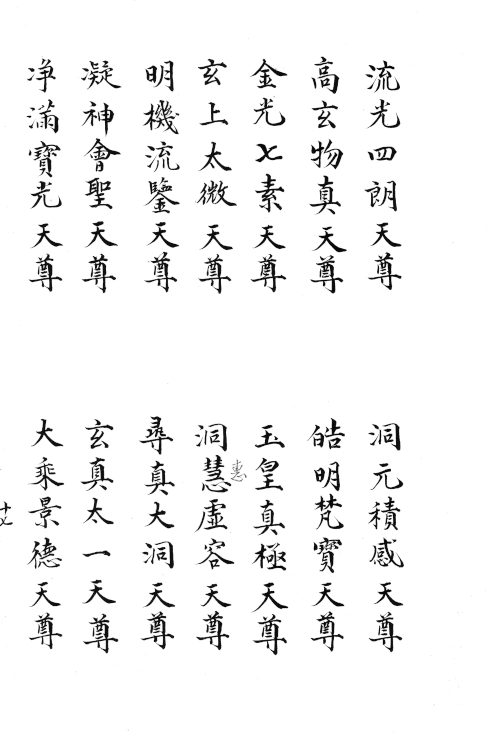 流光四朗天尊
洞元積感天尊
高玄物真天尊
皓明梵寶天尊
金光七素天尊
玉皇真極天尊
玄上太微天尊
洞慧虛容天尊
惠
明機流鑒天尊
尋真大洞天尊
凝神會聖天尊
玄真太一天尊
净滿寶光天尊
大乘景德天尊
十七